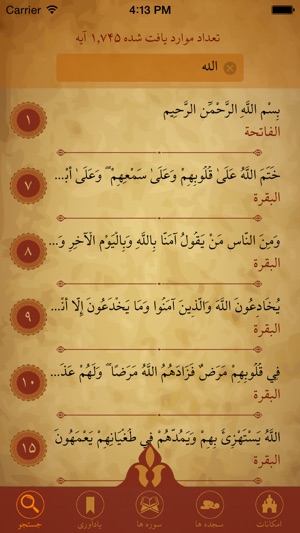 Carrier 4:13 PM
تعداد موارد یافت شده ۱,۷۴۵ آیه
الله
بِسْمِ اللَّهِ الرَّحْمَٰنِ الرَّحِيمِ
۱
الفاتحة
خَتَمَ اللَّهُ عَلَىٰ قُلُوبِهِمْ وَعَلَىٰ سَمْعِهِمْ ۖ وَعَلَىٰ أَبْ...
۷
البقرة
وَمِنَ النَّاسِ مَنْ يَقُولُ آمَنَّا بِاللَّهِ وَبِالْيَوْمِ الْآخِرِ وَ...
۸
البقرة
يُخَادِعُونَ اللَّهَ وَالَّذِينَ آمَنُوا وَمَا يَخْدَعُونَ إِلَّا أَنْ...
۹
البقرة
فِي قُلُوبِهِمْ مَرَضٌ فَزَادَهُمُ اللَّهُ مَرَضًا ۖ وَلَهُمْ عَذَ...
۱۰
البقرة
اللَّهُ يَسْتَهْزِئُ بِهِمْ وَيَمُدُّهُمْ فِي طُغْيَانِهِمْ يَعْمَهُونَ
۱۵
البقرة
امکانات سجده ها سوره ها یادآوری جستجو